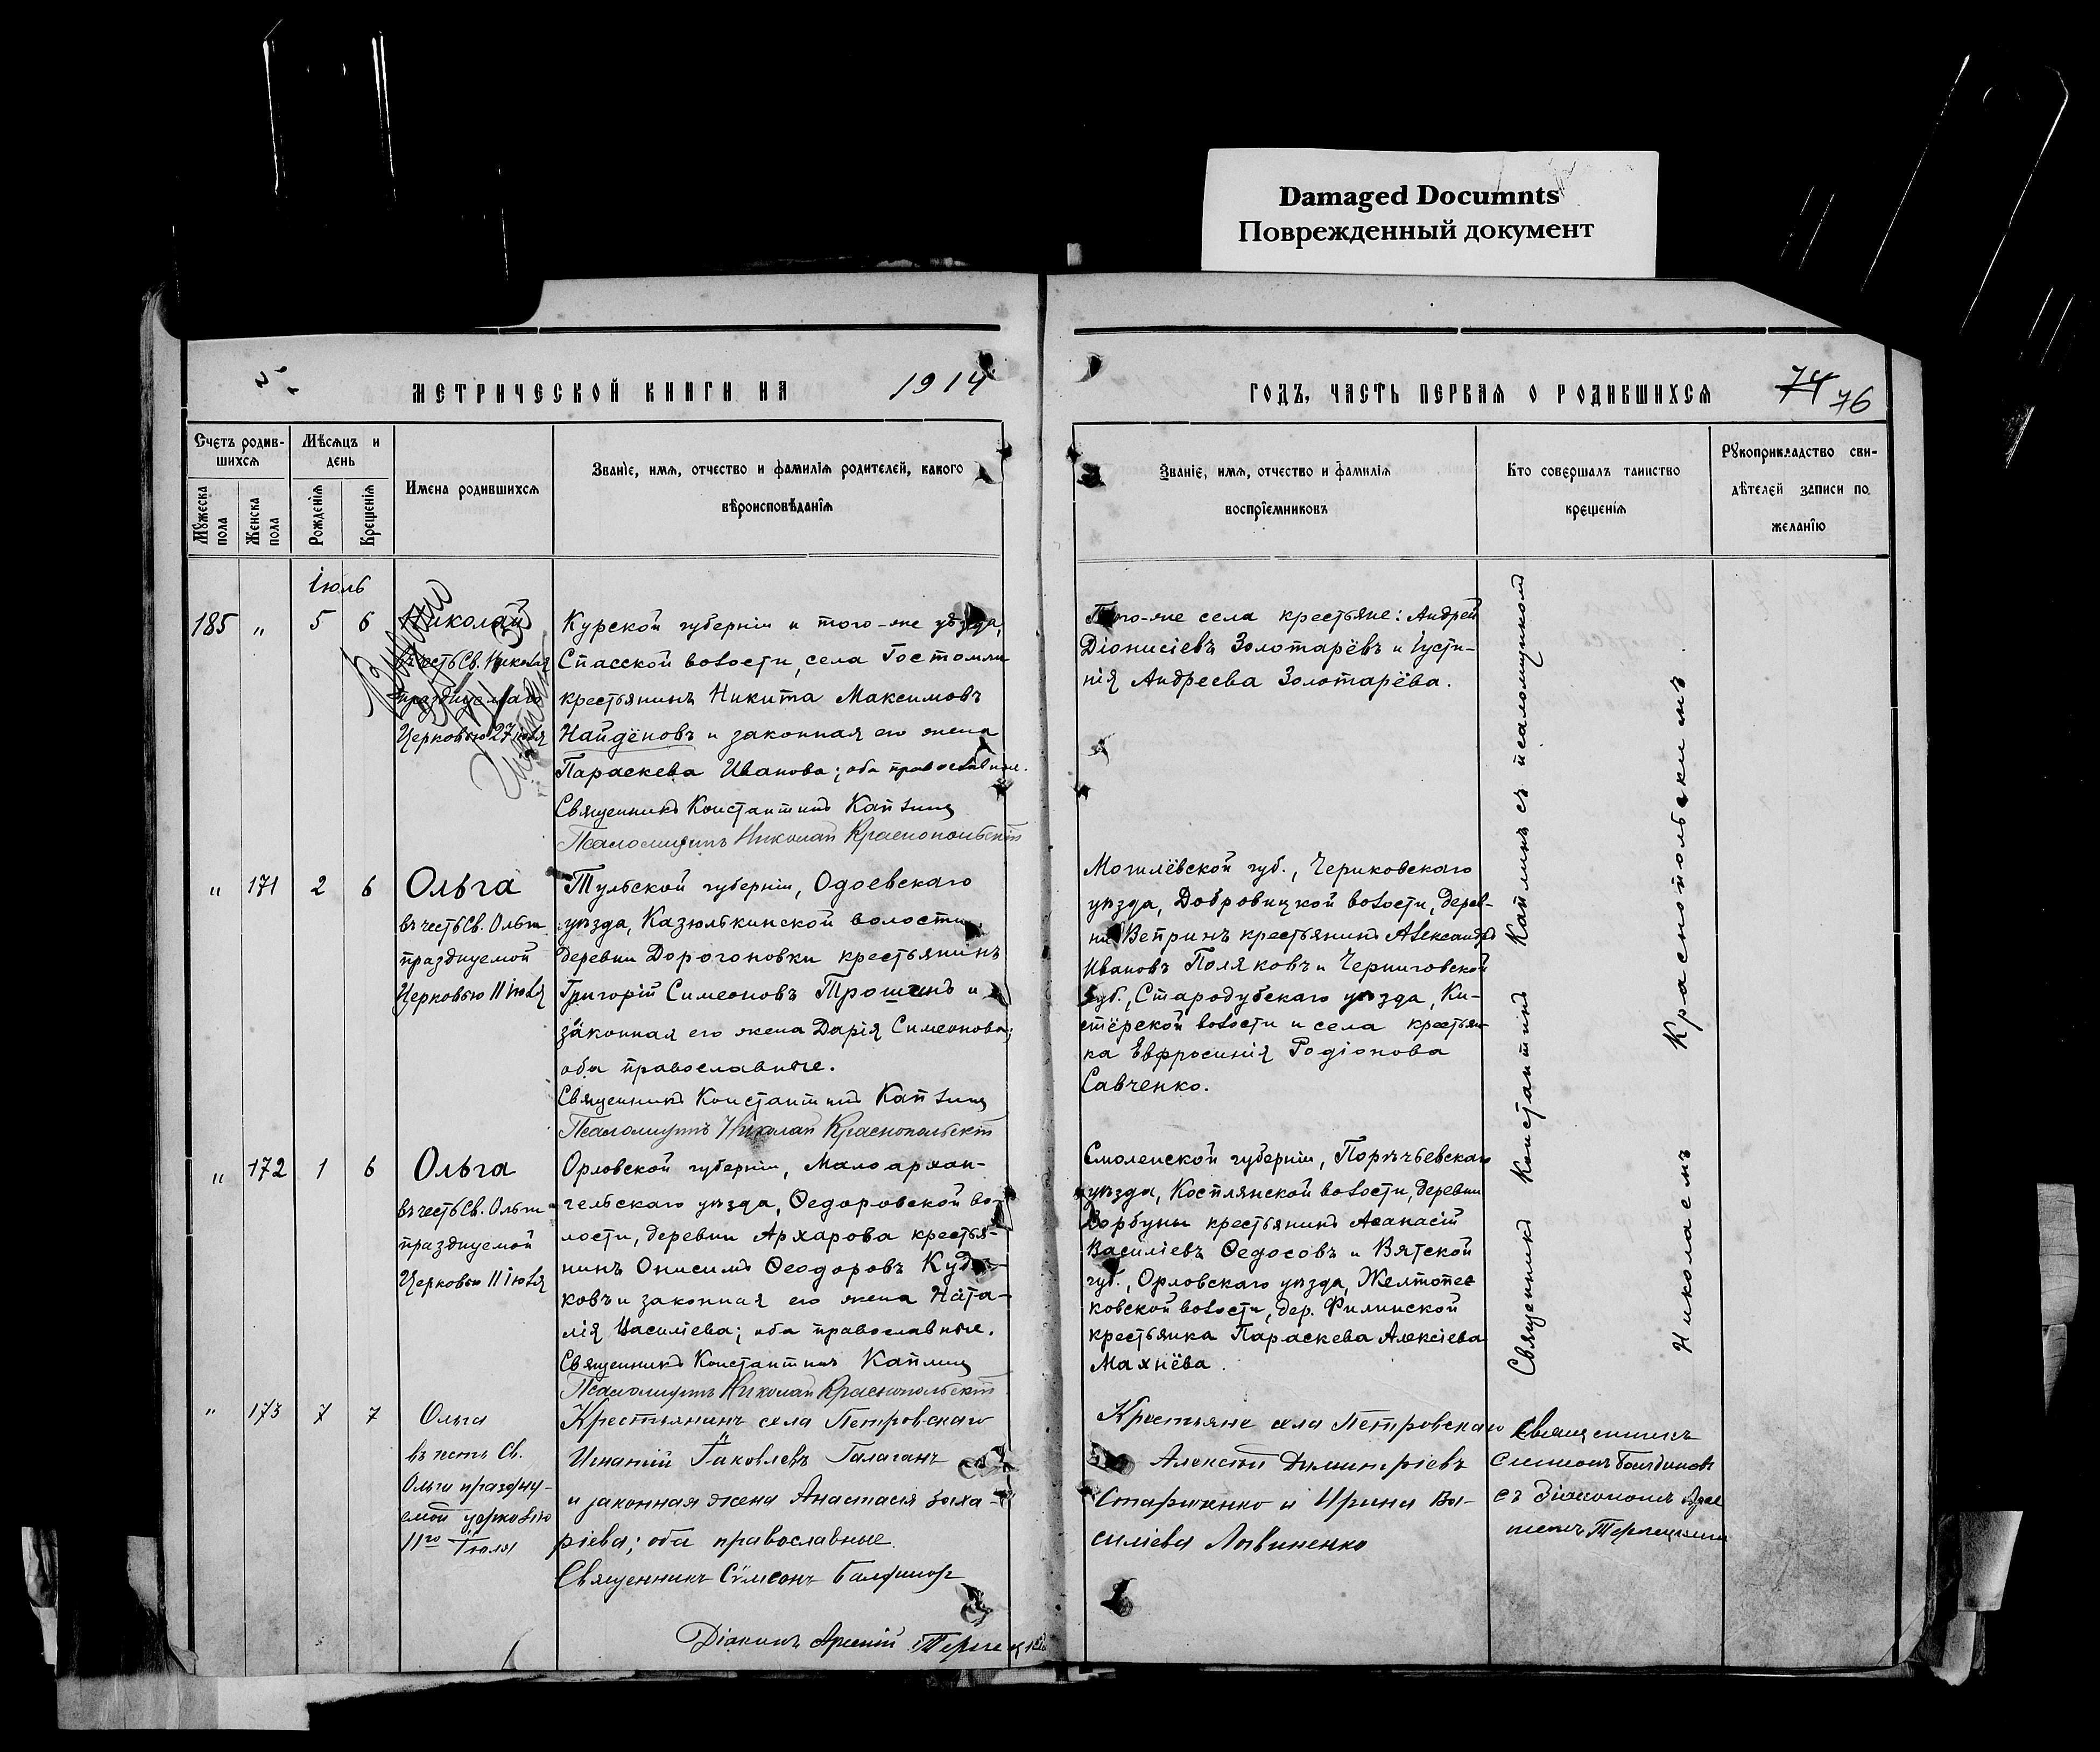 Damaged Documnts
Поврежденный документ
МЕТРИЧЕСКОЙ КНИГИ НА 1914
ГОДЪ, ЧАСТЬ ПЕРВАѦ О РОДИВШИХСѦ 74 76
Счетъ родив-
шихсѧ
Мужеска
пола
Женска
пола
Мѣсѧцъ и
день
Рожденіѧ
Крещеніѧ
Имена родившихсѧ
Званіе, имѧ, отчество и фамиліѧ родителей, какого
вѣроисповѣданіѧ
Званіе, имѧ, отчество и фамиліѧ
воспріемниковъ
Кто совершалъ таинство
крещеніѧ
Рукоприкладство сви-
дѣтелей записи по
желанію
Іюль
185 " 5 6
Николай
въ честь Св. Николая
празднуемаго
Церковью 27 іюля
Курской губерніи и того-же уѣзда,
Спасской волости, села Гостомли
крестьянинъ Никита Максимовъ
Найдёновъ и законная его жена
Параскева Иванова; оба православные.
Священникъ Константинъ Каплинъ
Псаломщикъ Николай Краснопольскій
Того-же села крестьяне: Андрей
Діонисіевъ Золотарёвъ и Іусти-
нія Андреева Золотарёва.
Священникъ Константинъ Каплинъ съ псаломщикомъ
Николаемъ Краснопольскимъ.
" 171 2 6
Ольга
въ честь Св. Ольги
празднуемой
Церковью 11 іюля
Тульской губерніи, Одоевскаго
уѣзда, Казюлькинской волости,
деревни Дорогоновки крестьянинъ
Григорій Симеоновъ Трошинъ и
законная его жена Дарія Симеонова;
оба православные.
Священникъ Константинъ Каплинъ
Псаломщикъ Николай Краснопольскій
Могилёвской губ., Чериковскаго
уѣзда, Добровицкой волости, дерев-
ни Вепринъ крестьянинъ Александръ
Ивановъ Поляковъ и Черниговской
губ., Стародубскаго уѣзда, Ки-
стёрской волости и села крестьян-
ка Евфросинія Родіонова
Савченко.
" 172 1 6
Ольга
въ честь Св. Ольги
празднуемой
Церковью 11 іюля
Орловской губерніи, Малоархан-
гельскаго уѣзда, Ѳедоровской во-
лости, деревни Архарова крестья-
нинъ Онисимъ Ѳеодоровъ
ковъ и законная его жена Ната-
лія Василіева; оба православные.
Священникъ Константинъ Каплинъ
Псаломщикъ Николай Краснопольскій
Смоленской губерніи, Порѣчьевскаго
уѣзда, Костлянской волости, деревни
крестьянинъ Аѳанасій
Василіевъ Ѳедосовъ и Вятской
губ., Орловскаго уѣзда,
ковской волости, дер. Филинской
крестьянка Параскева Алексіева
Махнёва.
" 173 7 7
Ольга
въ честь Св.
Ольги праздну-
емой церковью
11го Іюля
Крестьянинъ села Петровскаго
Игнатій Іаковлевъ Галаганъ
и законная жена Анастасія Заха-
ріева; оба православные.
Священникъ Сѵмеонъ
Діаконъ Арсеній
Крестьяне села Петровскаго
Алексій Димитріевъ
Стариченко и Ирина Ва-
силіева Литвиненко
Священникъ
съ діакономъ